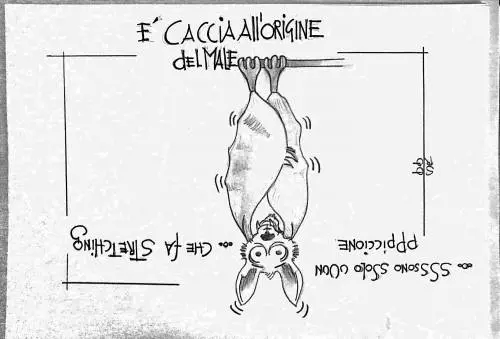 E' CACCIA All'ORIGINE
del MALE
... SSSSONO SSOLO UUUN
PPPICCIONE.
... CHE fA STRETCHING